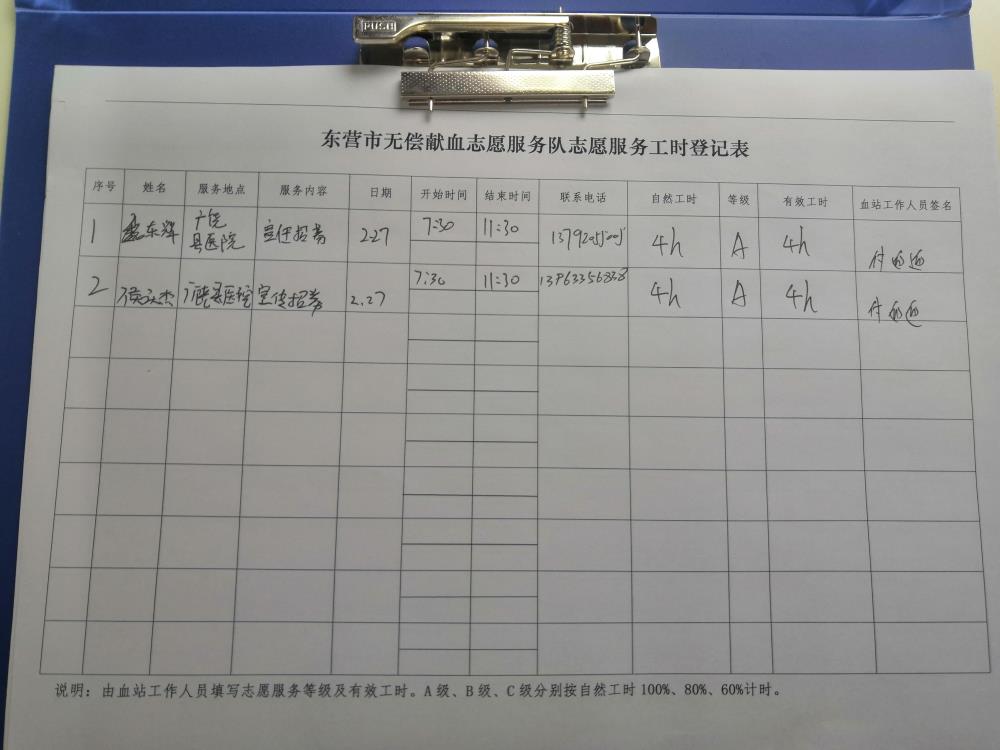 PUSH
东营市无偿献血志愿服务队志愿服务工时登记表
序号 姓名 服务地点 服务内容 日期 开始时间 结束时间 联系电话 自然工时 等级 有效工时 血站工作人员签名
1 东辉 广饶县医院 宣传招募 2.27 7:30 11:30 4h A 4h
2 广饶县医院 宣传招募 2.27 7:30 11:30 4h A 4h
说明：由血站工作人员填写志愿服务等级及有效工时。A级、B级、C级分别按自然工时100%、80%、60%计时。